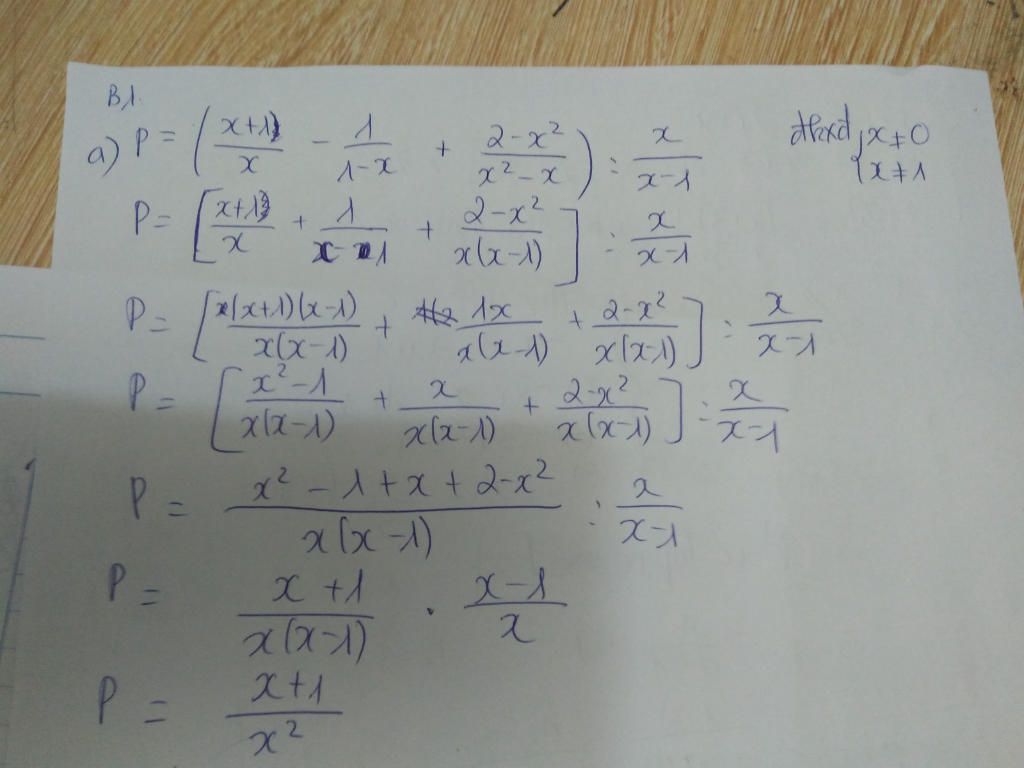 B1.
a) P = ( (x+1)/x - 1/(1-x) + (2-x²)/(x²-x) ) : x/(x-1) đkxđ { x ≠ 0
x ≠ 1
P = [ (x+1)/x + 1/(x-1) + (2-x²)/(x(x-1)) ] : x/(x-1)
P = [ (x+1)(x-1)/(x(x-1)) + 1x/(x(x-1)) + (2-x²)/(x(x-1)) ] : x/(x-1)
P = [ (x²-1)/(x(x-1)) + x/(x(x-1)) + (2-x²)/(x(x-1)) ] : x/(x-1)
P = (x² - 1 + x + 2 - x²)/(x(x-1)) : x/(x-1)
P = (x+1)/(x(x-1)) . (x-1)/x
P = (x+1)/x²